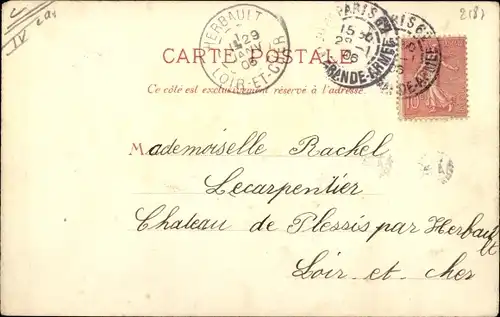 2187
HERBAULT
29
JANV
05
LOIR-ET-CHER
PARIS 62
GRANDE-ARMÉE
PARIS 62
GRANDE-ARMÉE
10
CARTE POSTALE
Ce côté est exclusivement réservé à l'adresse.
Mademoiselle Rachel
Lecarpentier
Chateau de Plessis par Herbault
Loir et cher